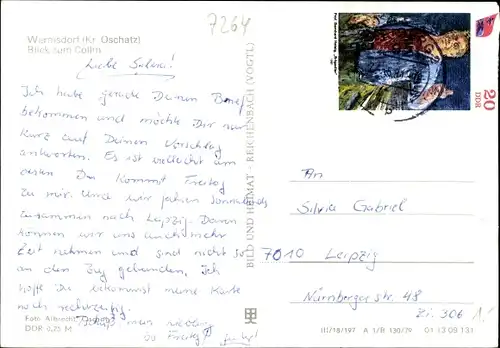 7264
Wermsdorf (Kr. Oschatz)
Blick zum Collm
Liebe
Ich habe gerade Deinen Brief
bekommen und möchte Dir nur
kurz auf Deinen Vorschlag
antworten. Es ist vielleicht am
besten Du kommst Freitag
zu mir. Und wir fahren
zusammen nach Leipzig. Dann
können wir uns auch mehr
Zeit nehmen und sind nicht so
an den Zug gebunden. Ich
hoffe Du bekommst meine Karte
noch rechtzeitig.
Tschüß
Freitag
Foto Albrecht, Oschatz
DDR 0,25 M
BILD UND HEIMAT · REICHENBACH (VOGTL)
20
DDR
An
Silvia Gabriel
7010 Leipzig
Nürnberger str. 48
Zi. 306
III/18/197 A 1/B 130/79 01 13 09 131